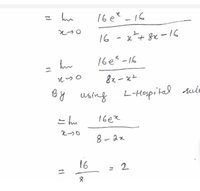 = lim x→0 (16 e^x - 16) / (16 - x² + 8x - 16)
= lim x→0 (16 e^x - 16) / (8x - x²)
By using L-Hospital rule
= lim x→0 16e^x / (8 - 2x)
= 16 / 8 = 2